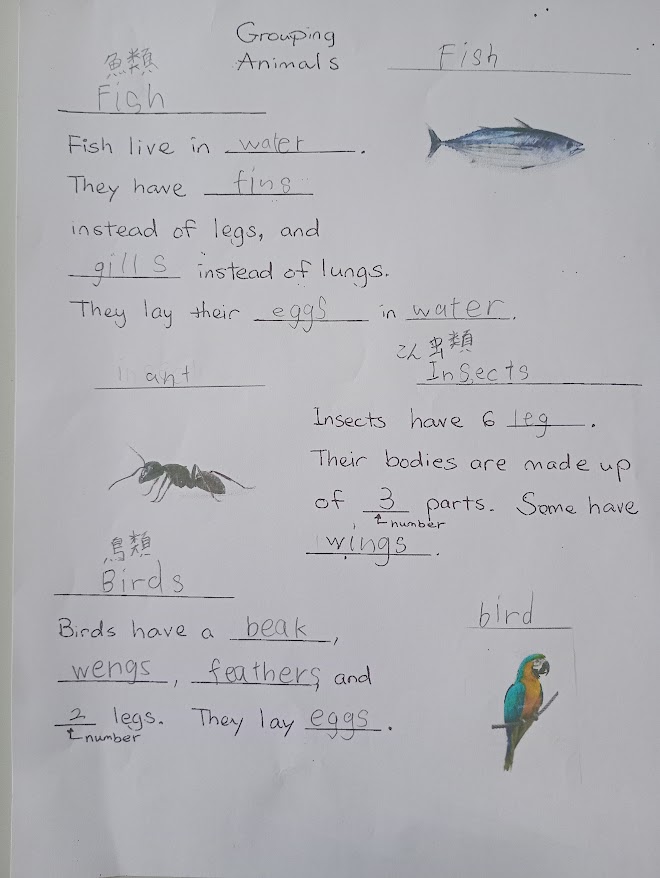 Grouping
Animals
Fish
魚類
Fish
Fish live in water.
They have fins
instead of legs, and
gills instead of lungs.
They lay their eggs in water.
ant
こん虫類
Insects
Insects have 6 leg.
Their bodies are made up
of 3 parts. Some have
↑number
wings.
鳥類
Birds
bird
Birds have a beak,
wengs, feathers, and
2 legs. They lay eggs.
↑number